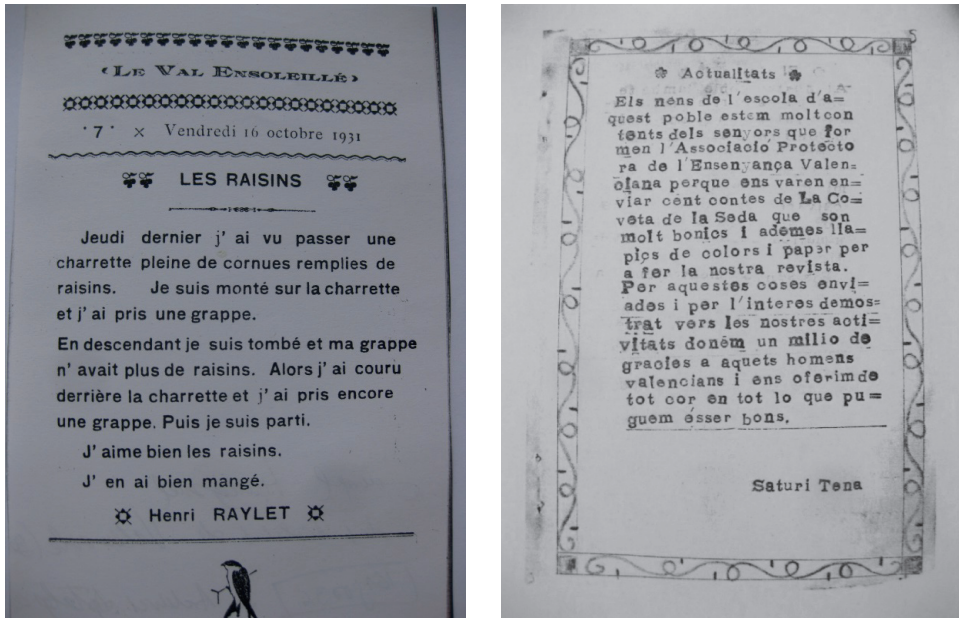 ‹ LE VAL ENSOLEILLÉ ›
· 7 · × Vendredi 16 octobre 1931
LES RAISINS
Jeudi dernier j' ai vu passer une
charrette pleine de cornues remplies de
raisins. Je suis monté sur la charrette
et j' ai pris une grappe.
En descendant je suis tombé et ma grappe
n' avait plus de raisins. Alors j' ai couru
derrière la charrette et j' ai pris encore
une grappe. Puis je suis parti.
J' aime bien les raisins.
J' en ai bien mangé.
Henri RAYLET
5
Actualitats
Els nens de l'escola d'a=
quest poble estem moltcon
tents dels senyors que for
men l'Associacio Protecto
ra de l'Ensenyança Valen=
ciana perque ens varen en=
viar cent contes de La Co=
veta de la Seda que son
molt bonics i ademes lla=
pics de colors i paper per
a fer la nostra revista.
Per aquestes coses envi=
ades i per l'interes demos=
trat vers les nostres acti=
vitats donèm un milio de
gracies a aquets homens
valencians i ens oferimde
tot cor en tot lo que pu=
guem ésser bons.
Saturi Tena